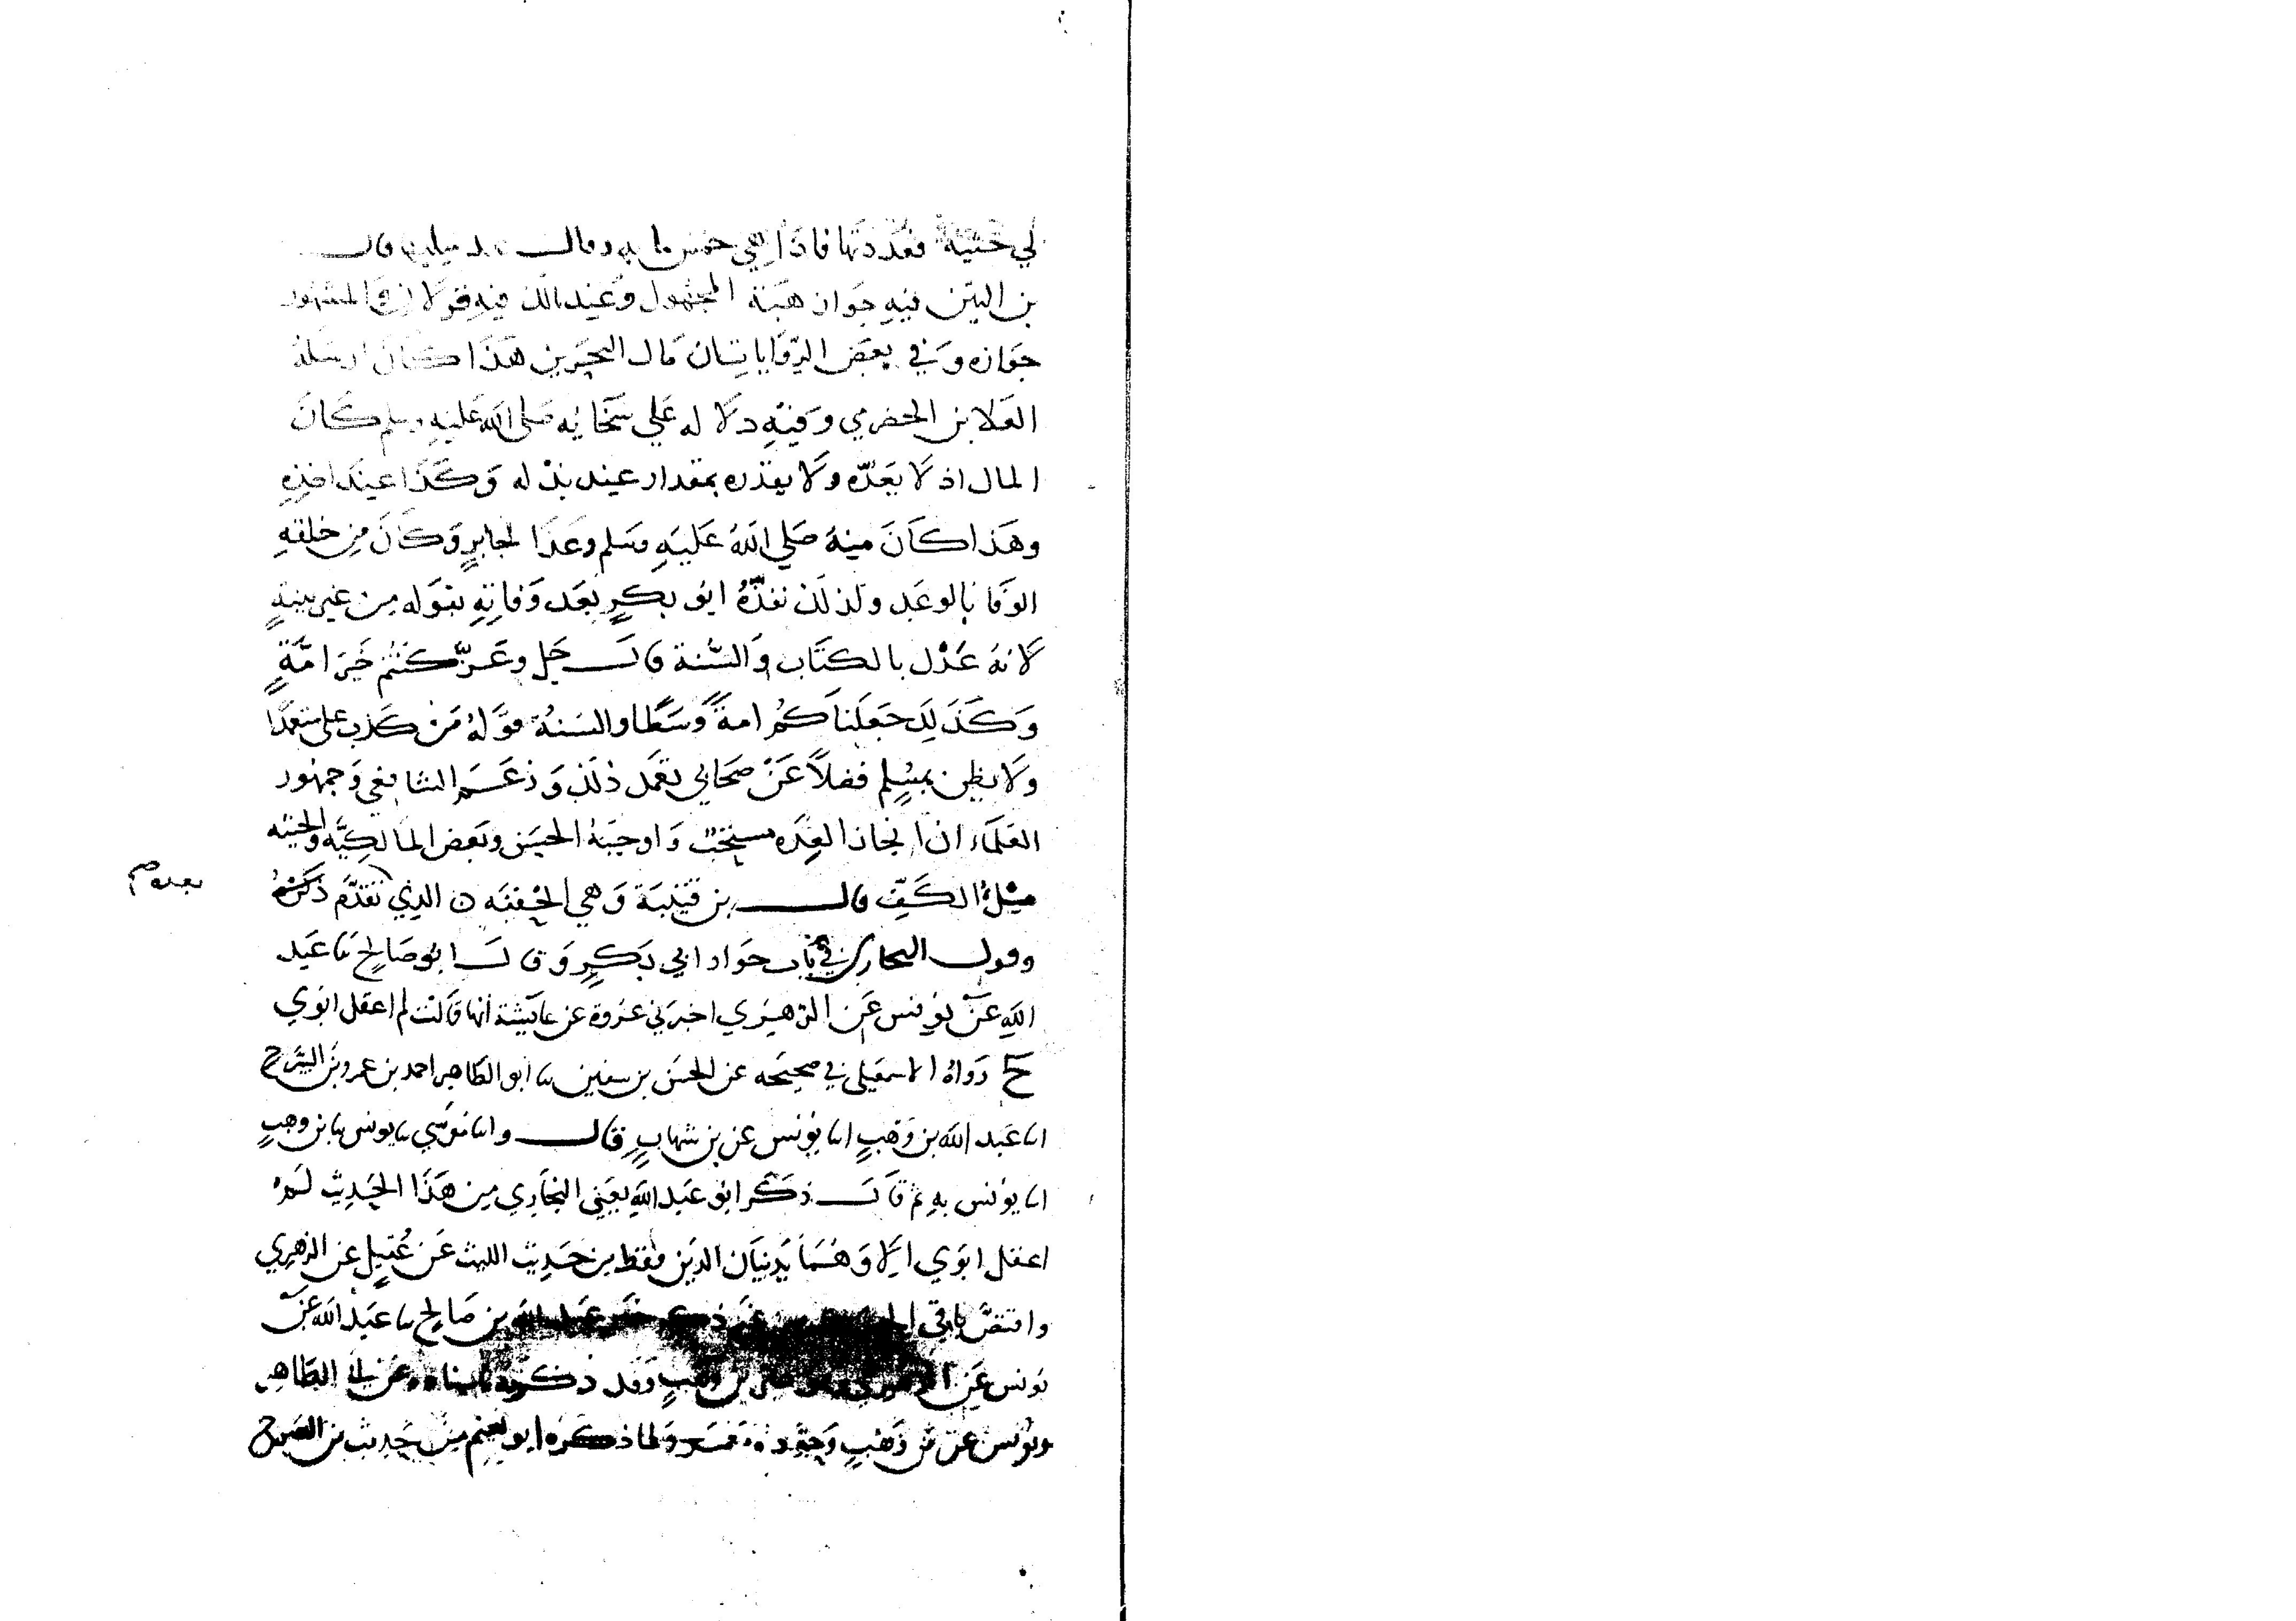 لي حثية فعددتها فاذا هي خمس مايه وقال خد مثليها قال
بن التين فيه جواز هبة المجهول وعند مالك فيه قولان والمشهور
جوازه وفي بعض الروايات ان مال البحرين هذا كان ارسله
العلا بن الحضرمي وفيه دلاله علي سخائه صلي الله عليه وسلم كان
المال اذ لا يعده ولا يقدره بمقدار عند بذله وكذا عند اخذه
وهذا كان منه صلي الله عليه وسلم وعدا لجابر وكان من خلقه
الوفا بالوعد ولذلك نفذه ابو بكر بعد وفاته بقوله من غير بينة
لانه عدل بالكتاب والسنة قال جل وعز كنتم خير امة
وكذلك جعلناكم امة وسطا والسنة قوله من كذب علي متعمدا
ولا يظن بمسلم فضلا عن صحابي تعمد ذلك وزعم الشافعي وجمهور
العلماء ان انجاز العده مستحب واوجبه الحسن وبعض المالكيه والحثيه
مثل الكف قال بن قتيبة وهي الحفنه ن الذي تقدم ذكره
بعده صم
وقول البخاري في باب جوار ابي بكر وقال ابو صالح ثنا عبد
الله عن يونس عن الزهري اخبرني عروة عن عايشة انها قالت لم اعقل ابوي
ح رواه الاسمعيلي في صحيحه عن الحسن بن سفين ثنا ابو الطاهر احمد بن عمرو بن السرح
انا عبد الله بن وهب انا يونس عن بن شهاب قال وانا موسي ثنا يونس ثنا بن وهب
انا يونس به ثم قال ذكر ابو عبد الله يعني البخاري من هذا الحديث لم
اعقل ابوي الا وهما يدينان الدين فقط من حديث الليث عن عقيل عن الزهري
واقتص باقي بن صالح ثنا عبد الله عن
يونس عن بن وهب وقد ذكرته عن ابي الطاهر
ويونس عن بن وهب ولما ذكره ابو نعيم من حديث بن السرح